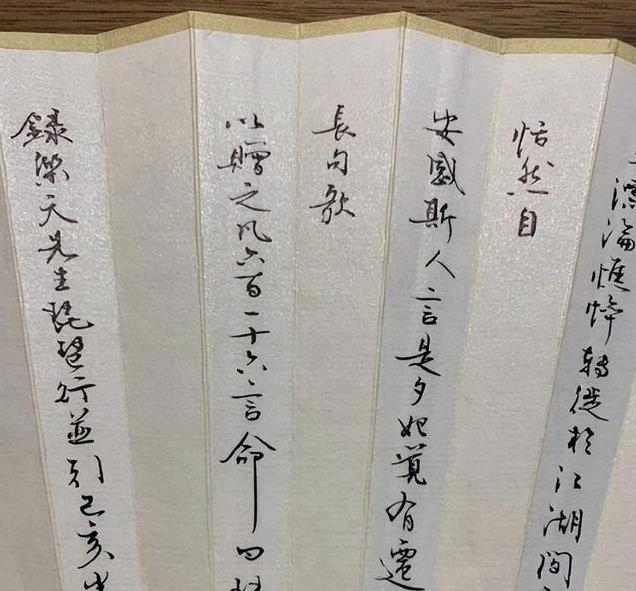 漂淪憔悴轉徙於江湖間
恬然自
安感斯人言是夕始覺有遷
長句歌
以贈之凡六百一十六言命曰
錄樂天先生琵琶行並引己亥